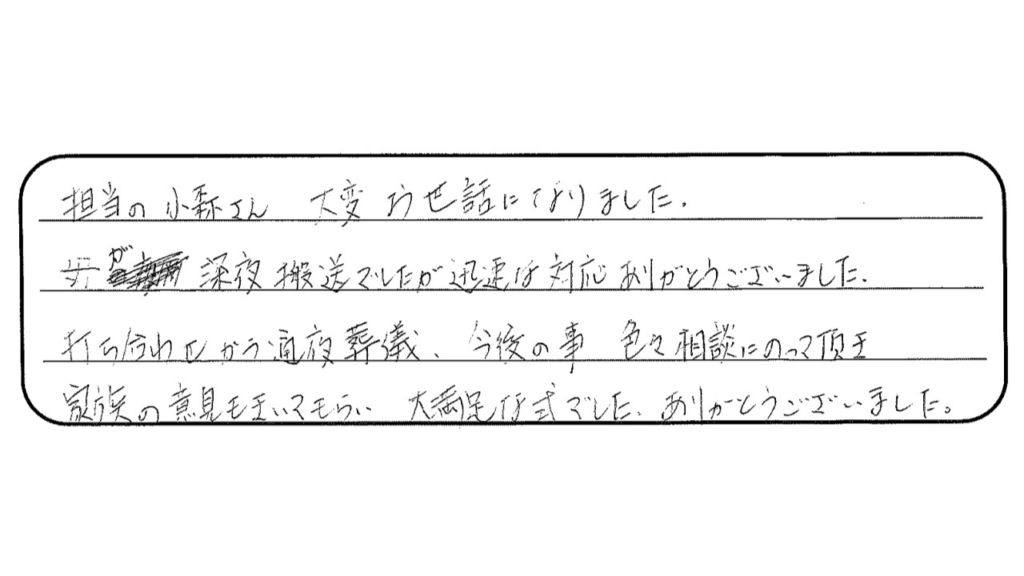 担当の小森さん 大変お世話になりました.
母が 深夜搬送でしたが迅速な対応ありがとうございました.
打ち合わせから通夜葬儀、今後の事 色々相談にのって頂き
家族の意見もきいてもらい 大満足な式でした、ありがとうございました。